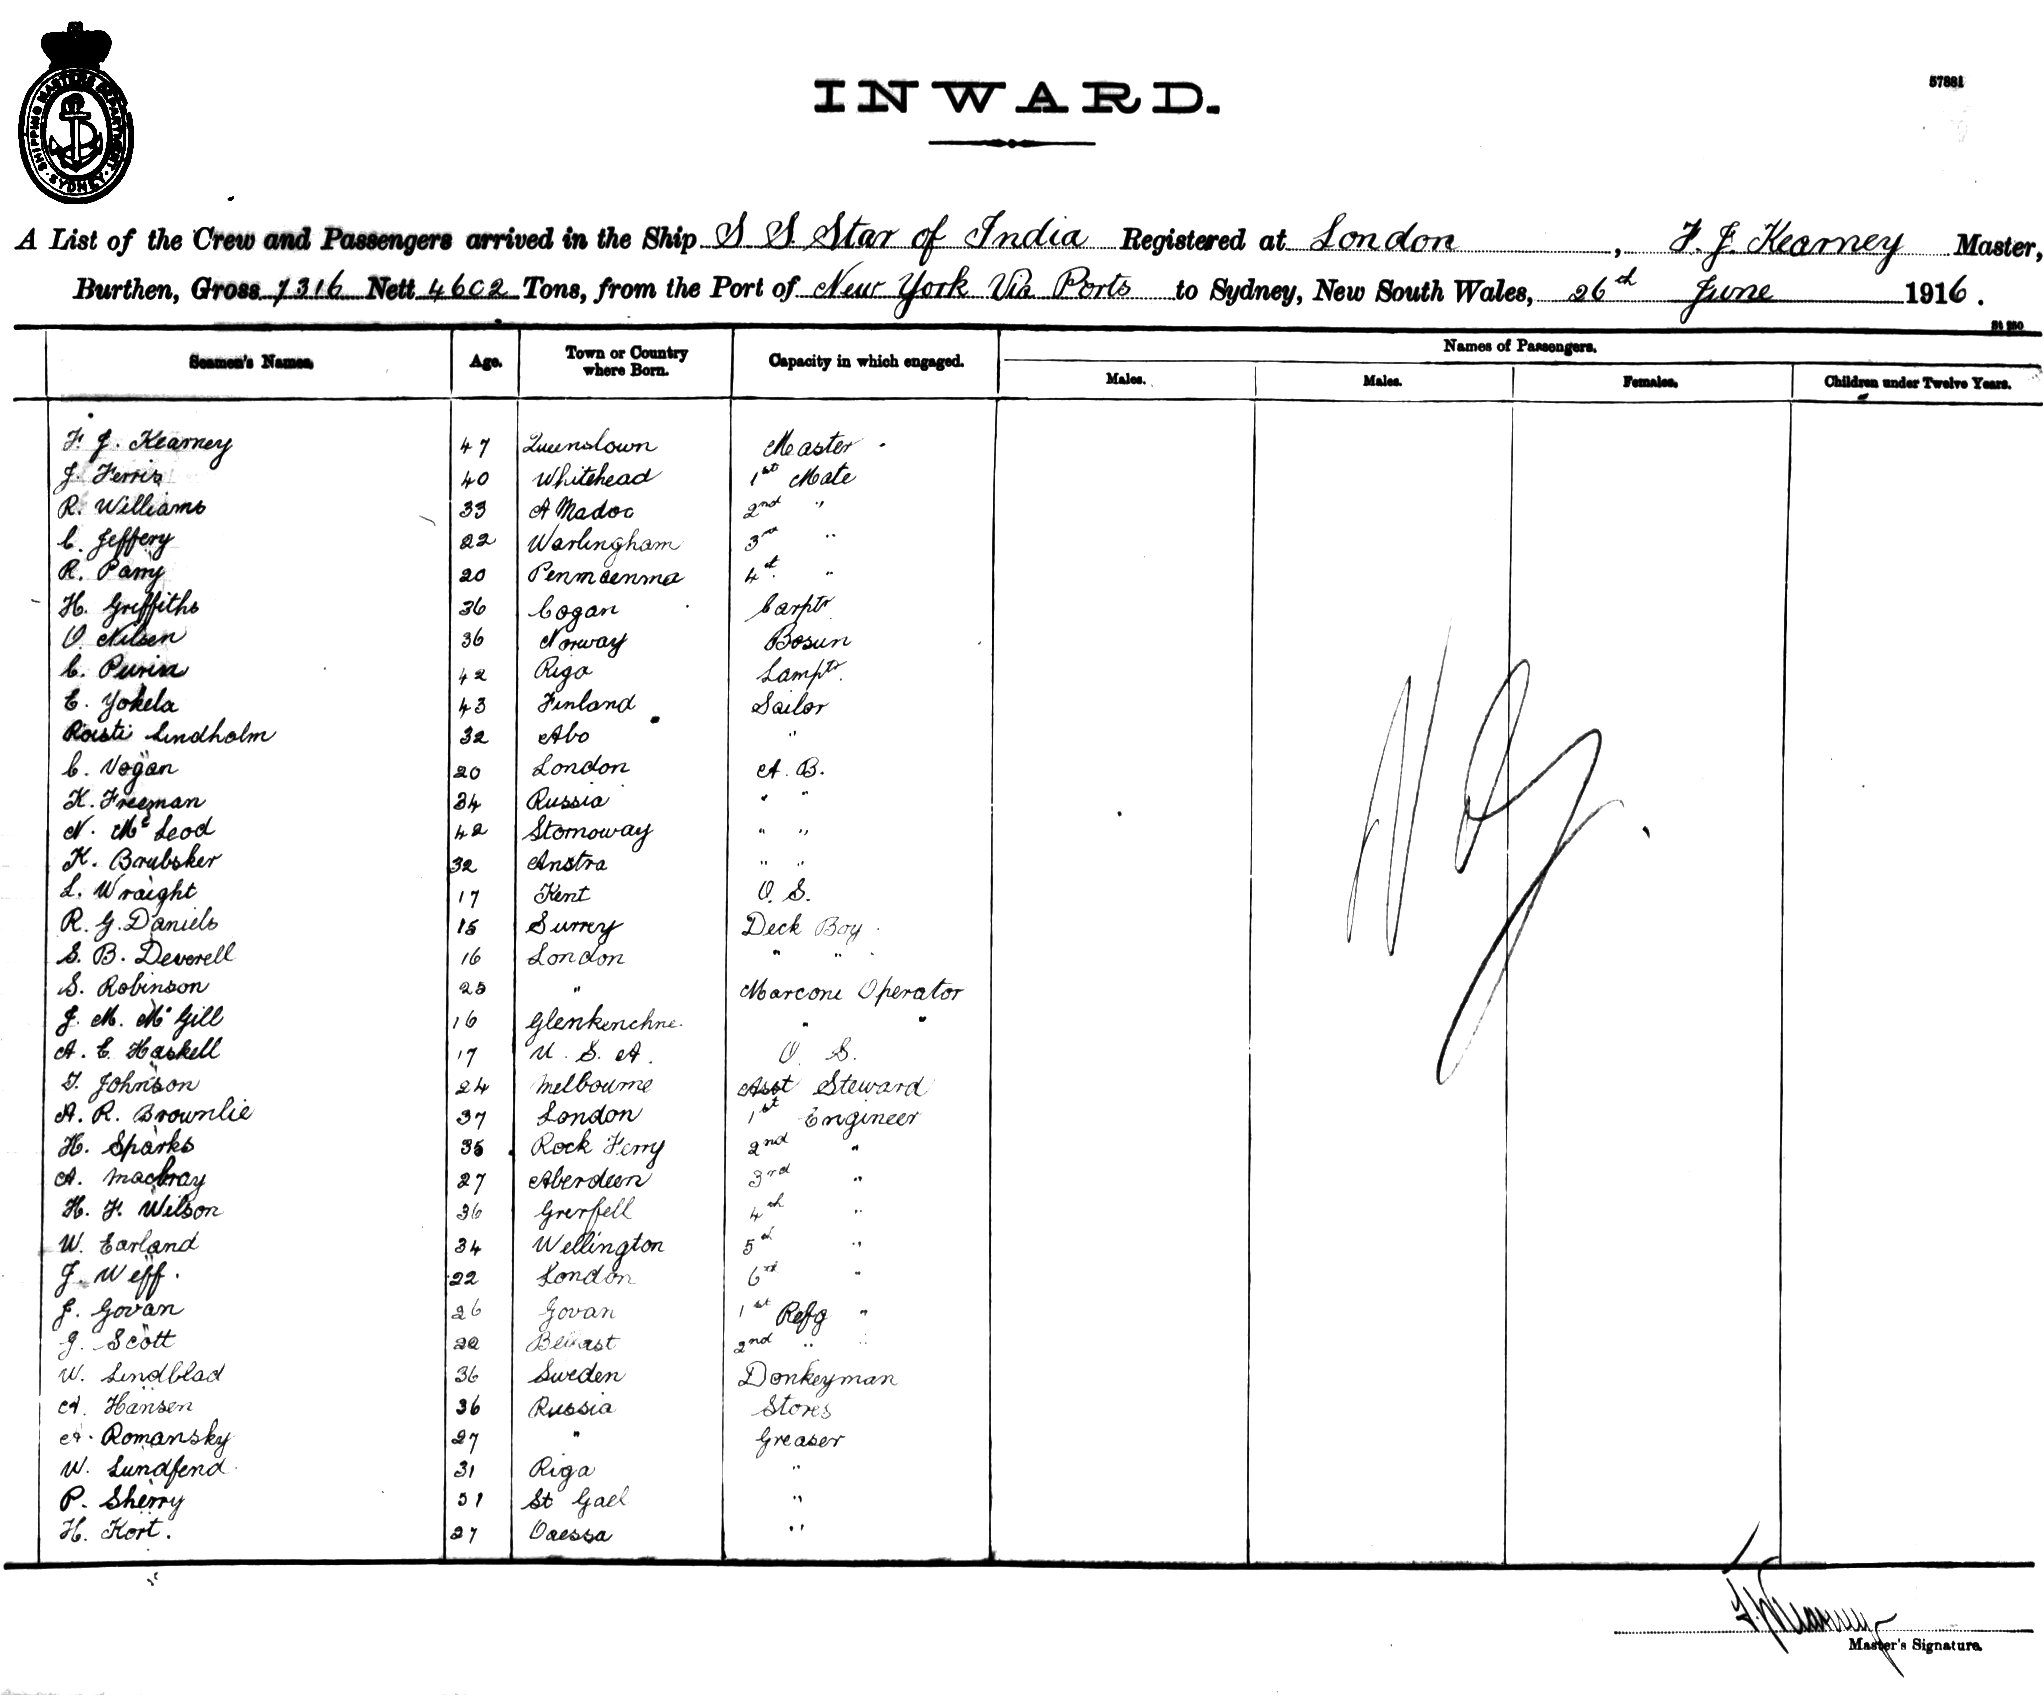 SHIPPING MASTERS DEPARTMENT SYDNEY
INWARD.
57881
A List of the Crew and Passengers arrived in the Ship S S Star of India Registered at London, F. J. Kearney Master,
Burthen, Gross 7316 Nett 4602 Tons, from the Port of New York Via Ports to Sydney, New South Wales, 26th June 1916.
Seamen's Names. Age. Town or Country where Born. Capacity in which engaged. Names of Passengers.
Males. Males. Females. Children under Twelve Years.
F. J. Kearney 47 Queenstown Master
J. Ferris 40 Whitehead 1st Mate
R. Williams 33 P Madoc 2nd "
C. Jeffery 22 Warlingham 3rd "
R. Parry 20 Penmaenma 4th "
H. Griffiths 36 Cogan Carptr
O Nilsen 36 Norway Bosun
C. Purin 42 Riga Lamptr.
E. Yokela 43 Finland Sailor
Roisti Lindholm 32 Abo "
C. Vogan 20 London A. B.
K. Freeman 34 Russia " "
N. McLeod 42 Stornoway " "
K. Brubsker 32 Anstra " "
L. Wraight 17 Kent O. S.
R. G. Daniels 15 Surrey Deck Boy
S. B. Deverell 16 London " "
S. Robinson 25 " Marconi Operator
J. M. McGill 16 Glenkenchne " "
A. E. Haskell 17 U. S. A. O. S.
T. Johnson 24 Melbourne Asst Steward
A. R. Brownlie 37 London 1st Engineer
H. Sparks 35 Rock Ferry 2nd "
A. Mackray 27 Aberdeen 3rd "
H. F. Wilson 36 Grenfell 4th "
W. Earland 34 Wellington 5th "
J. Weff. 22 London 6th "
J. Govan 26 Govan 1st Refg "
J. Scott 22 Belfast 2nd " "
W. Lindblad 36 Sweden Donkeyman
A. Hansen 36 Russia Stores
A. Romansky 27 " Greaser
W. Lundfend 31 Riga "
P. Sherry 51 St Gael "
H. Kort. 27 Odessa "
F. J. Kearney
Master's Signature.